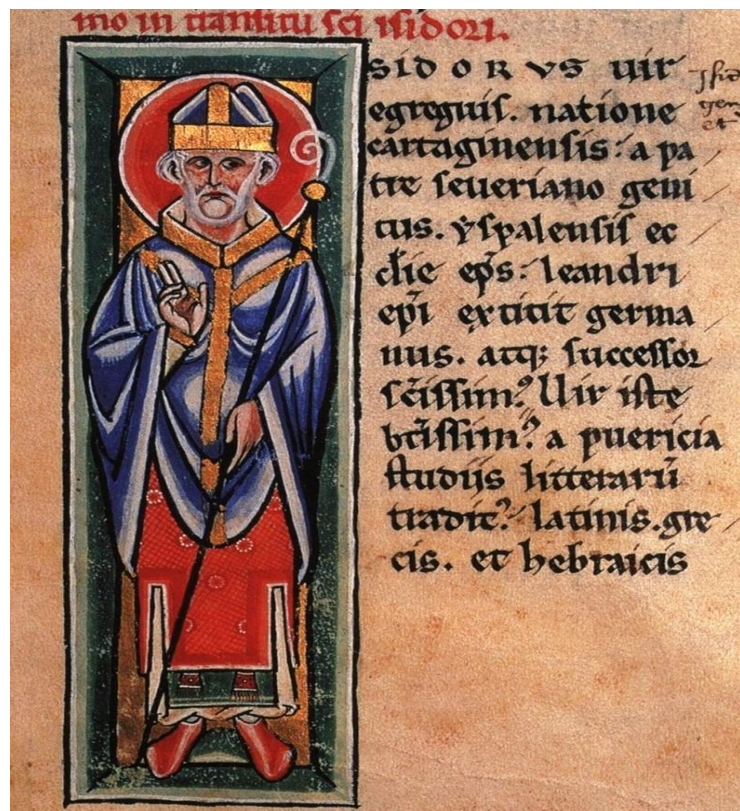 mo in transitu sci isidori.
SIDORVS uir
egregius. natione
cartaginensis: a pa
tre seueriano geni
tus. yspalensis ec
clie eps: leandri
epi extitit germa
nus. atq; successor
scissim9. Uir iste
btissim9. a puericia
studiis litterarū
tradit9. latinis. gre
cis. et hebraicis